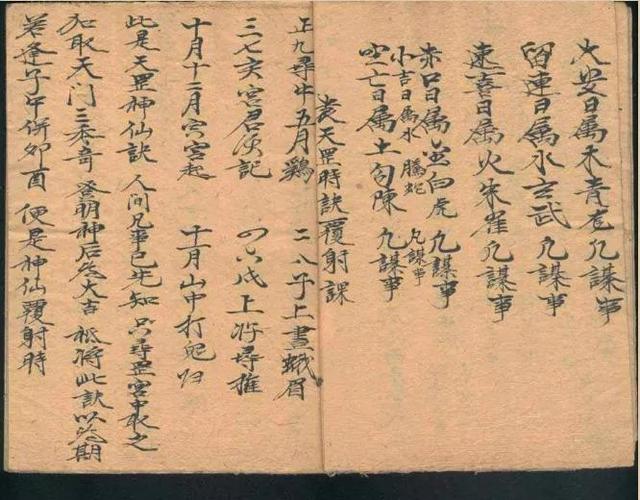 大安日属木青龙凡謀事
留連日属水玄武凡謀事
速喜日属火朱雀凡謀事
赤口日属金白虎凡謀事
小吉日属水騰蛇凡謀事
空亡日属土勾陳凡謀事
袁天罡時訣覆射課
正九尋牛五月鷄 二八子上畫蛾眉
三七亥宮君須記 四六戌上將尋推
十月十二月宮起 十一月山中打兔归
此是天罡神仙訣 人间凡事已先知 只尋罡宮中取之
加取天门三奇 登明神后与大吉 秪将此訣以為期
若逢子午併卯酉 便是神仙覆射時